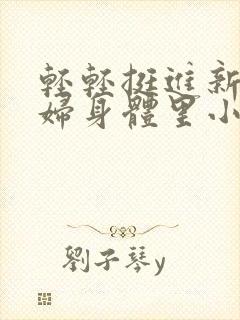 輕輕挺進新
婦身體里小
劉子琴y